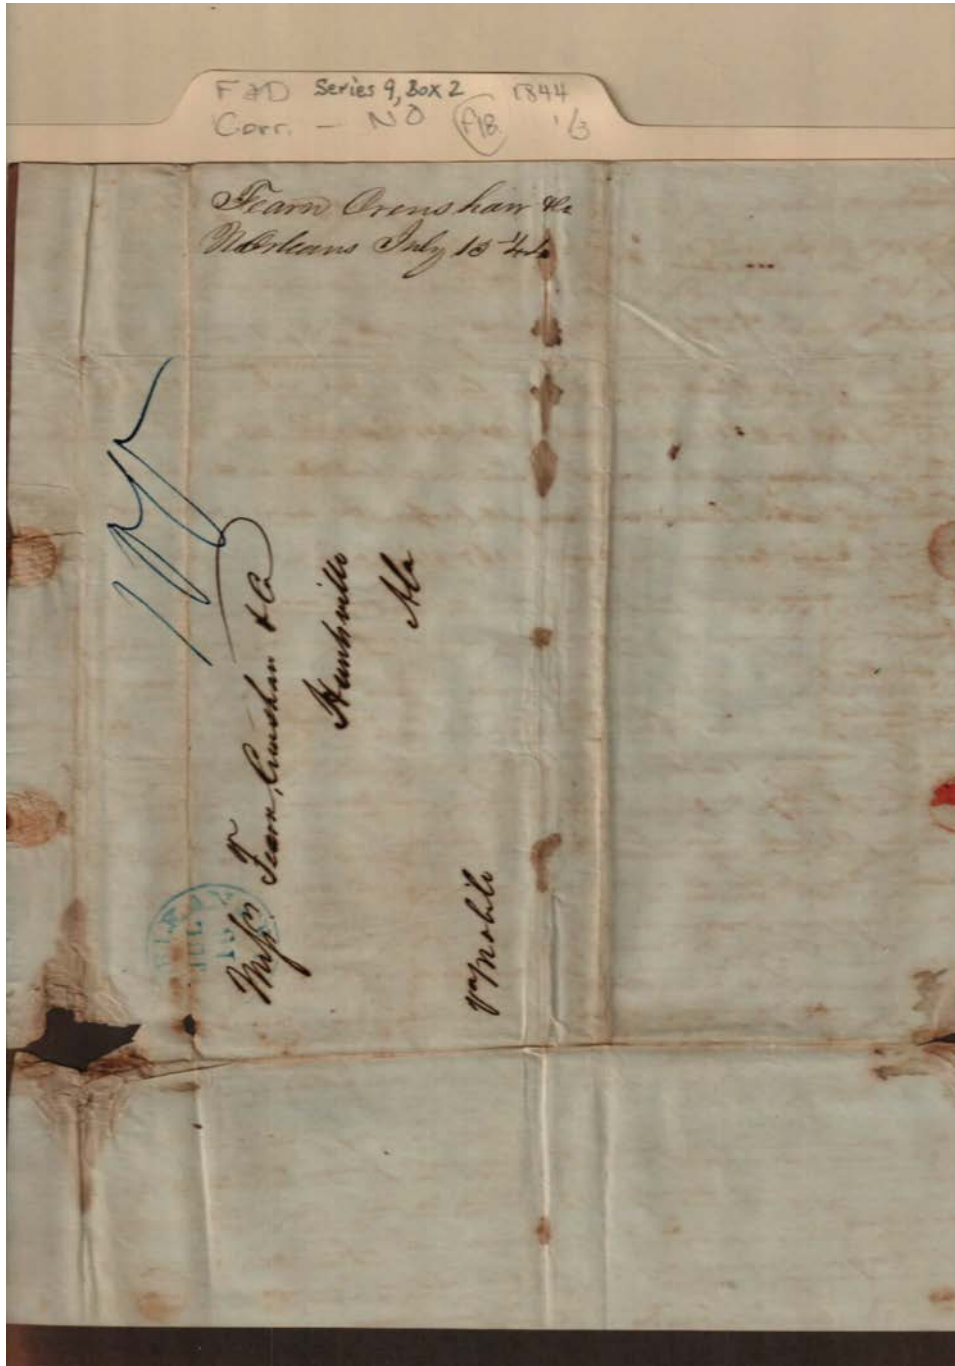 F&D Series 9, Box 2 1844
Corr. - NO F1B 1/3
Fearn Crenshaw &Co
NOrleans July 13 44
Messrs Fearn, Crenshaw & Co
Huntsville
Ala
via Mobile
JUL